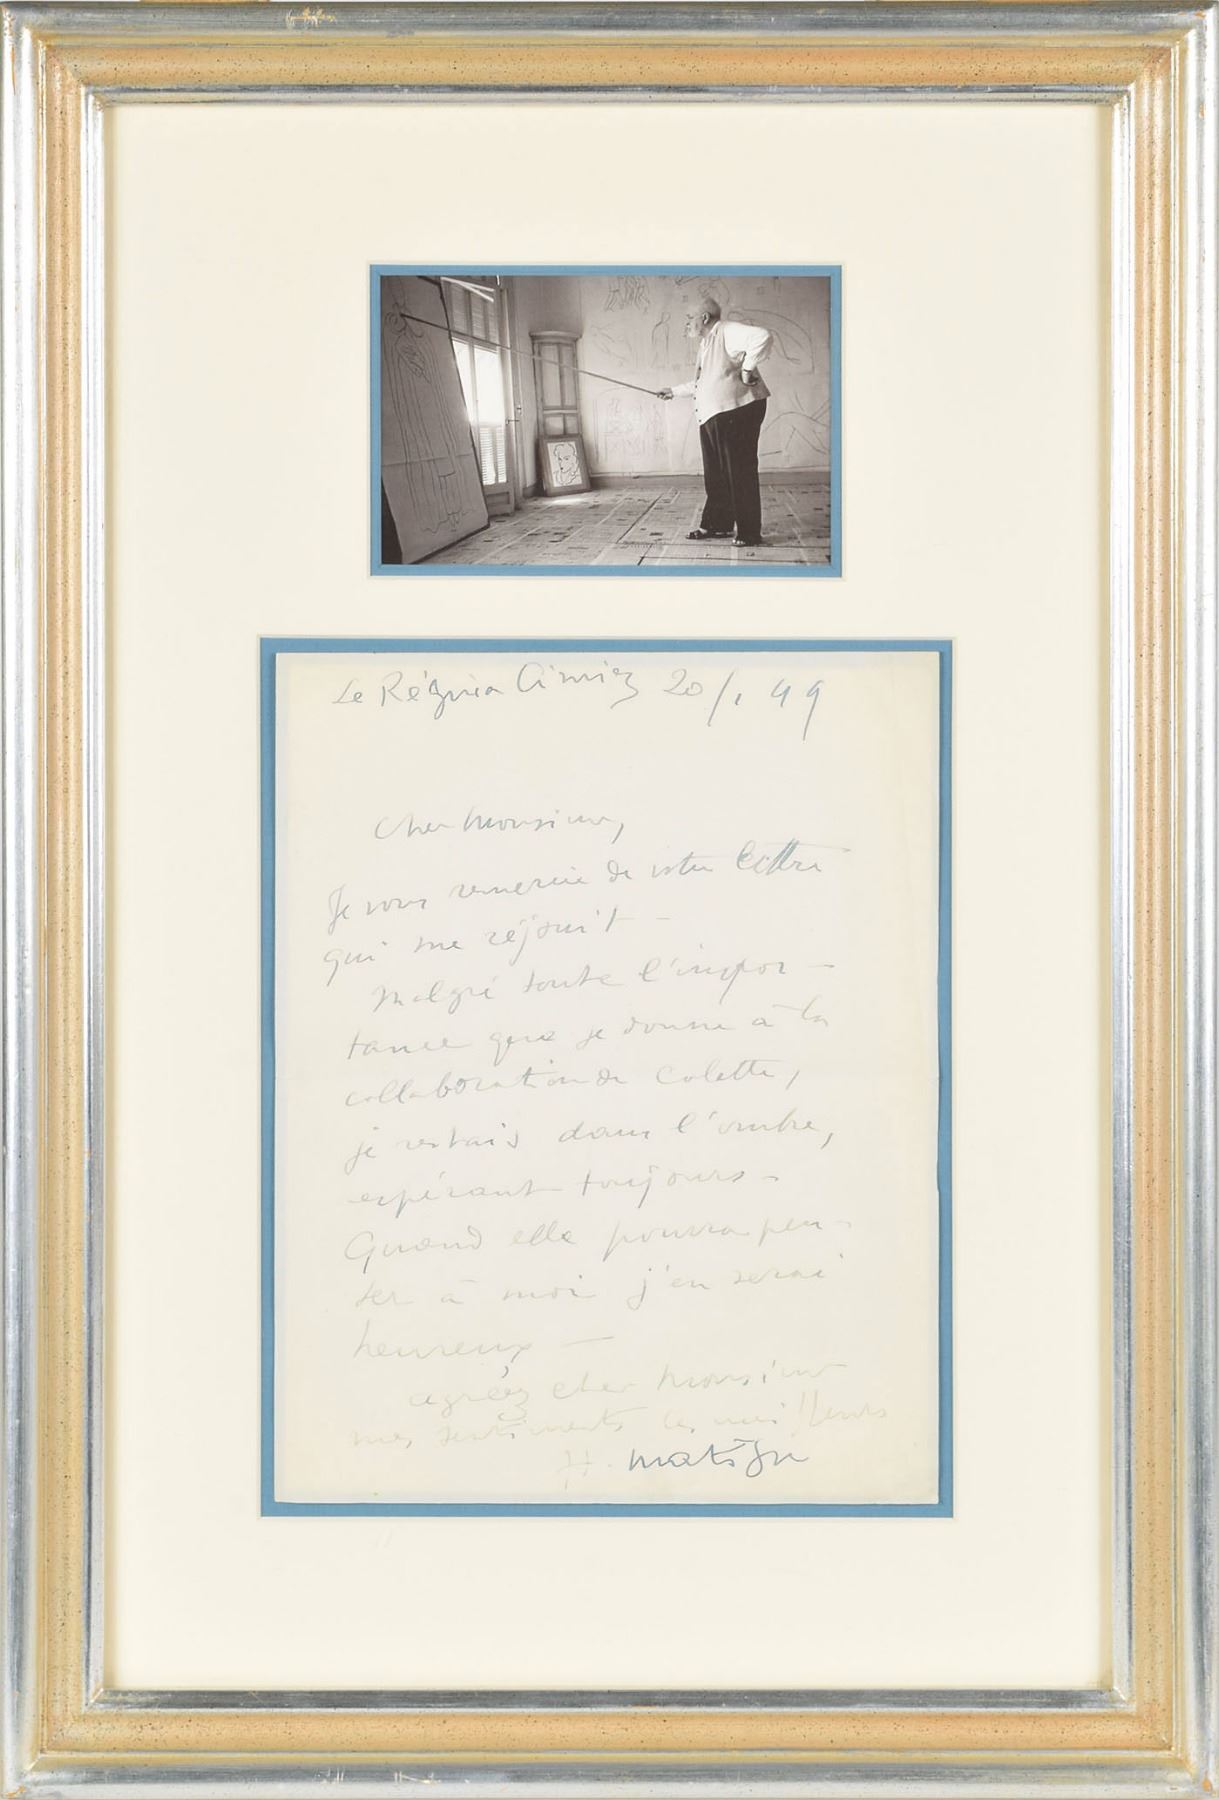 Le Régina Cimiez 20/1 49
Cher Monsieur,
Je vous remercie de votre lettre
qui me réjouit –
Malgré toute l'impor –
tance que je donne à la
collaboration de Colette,
je restais dans l'ombre,
espérant toujours –
Quand elle pourra pen –
ser à moi j'en serai
heureux –
agréez cher Monsieur
mes sentiments les meilleurs
H. Matisse